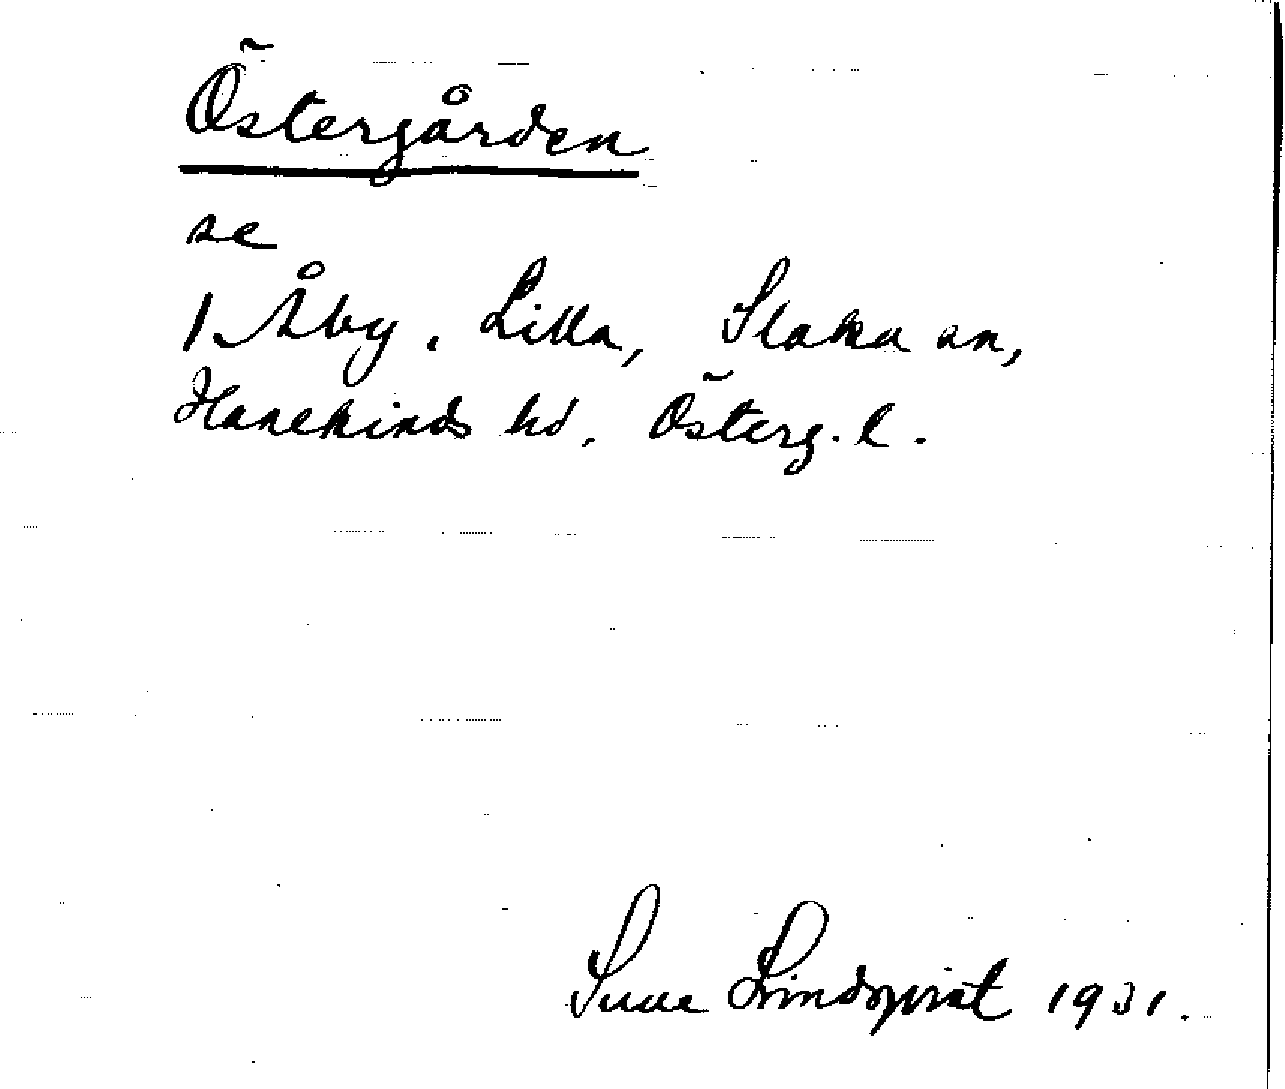 Östergården
se
1. Åby, Lilla, Slaka sn,
Hanekinds hd. Österg. l.
Sune Lindqvist 1931.